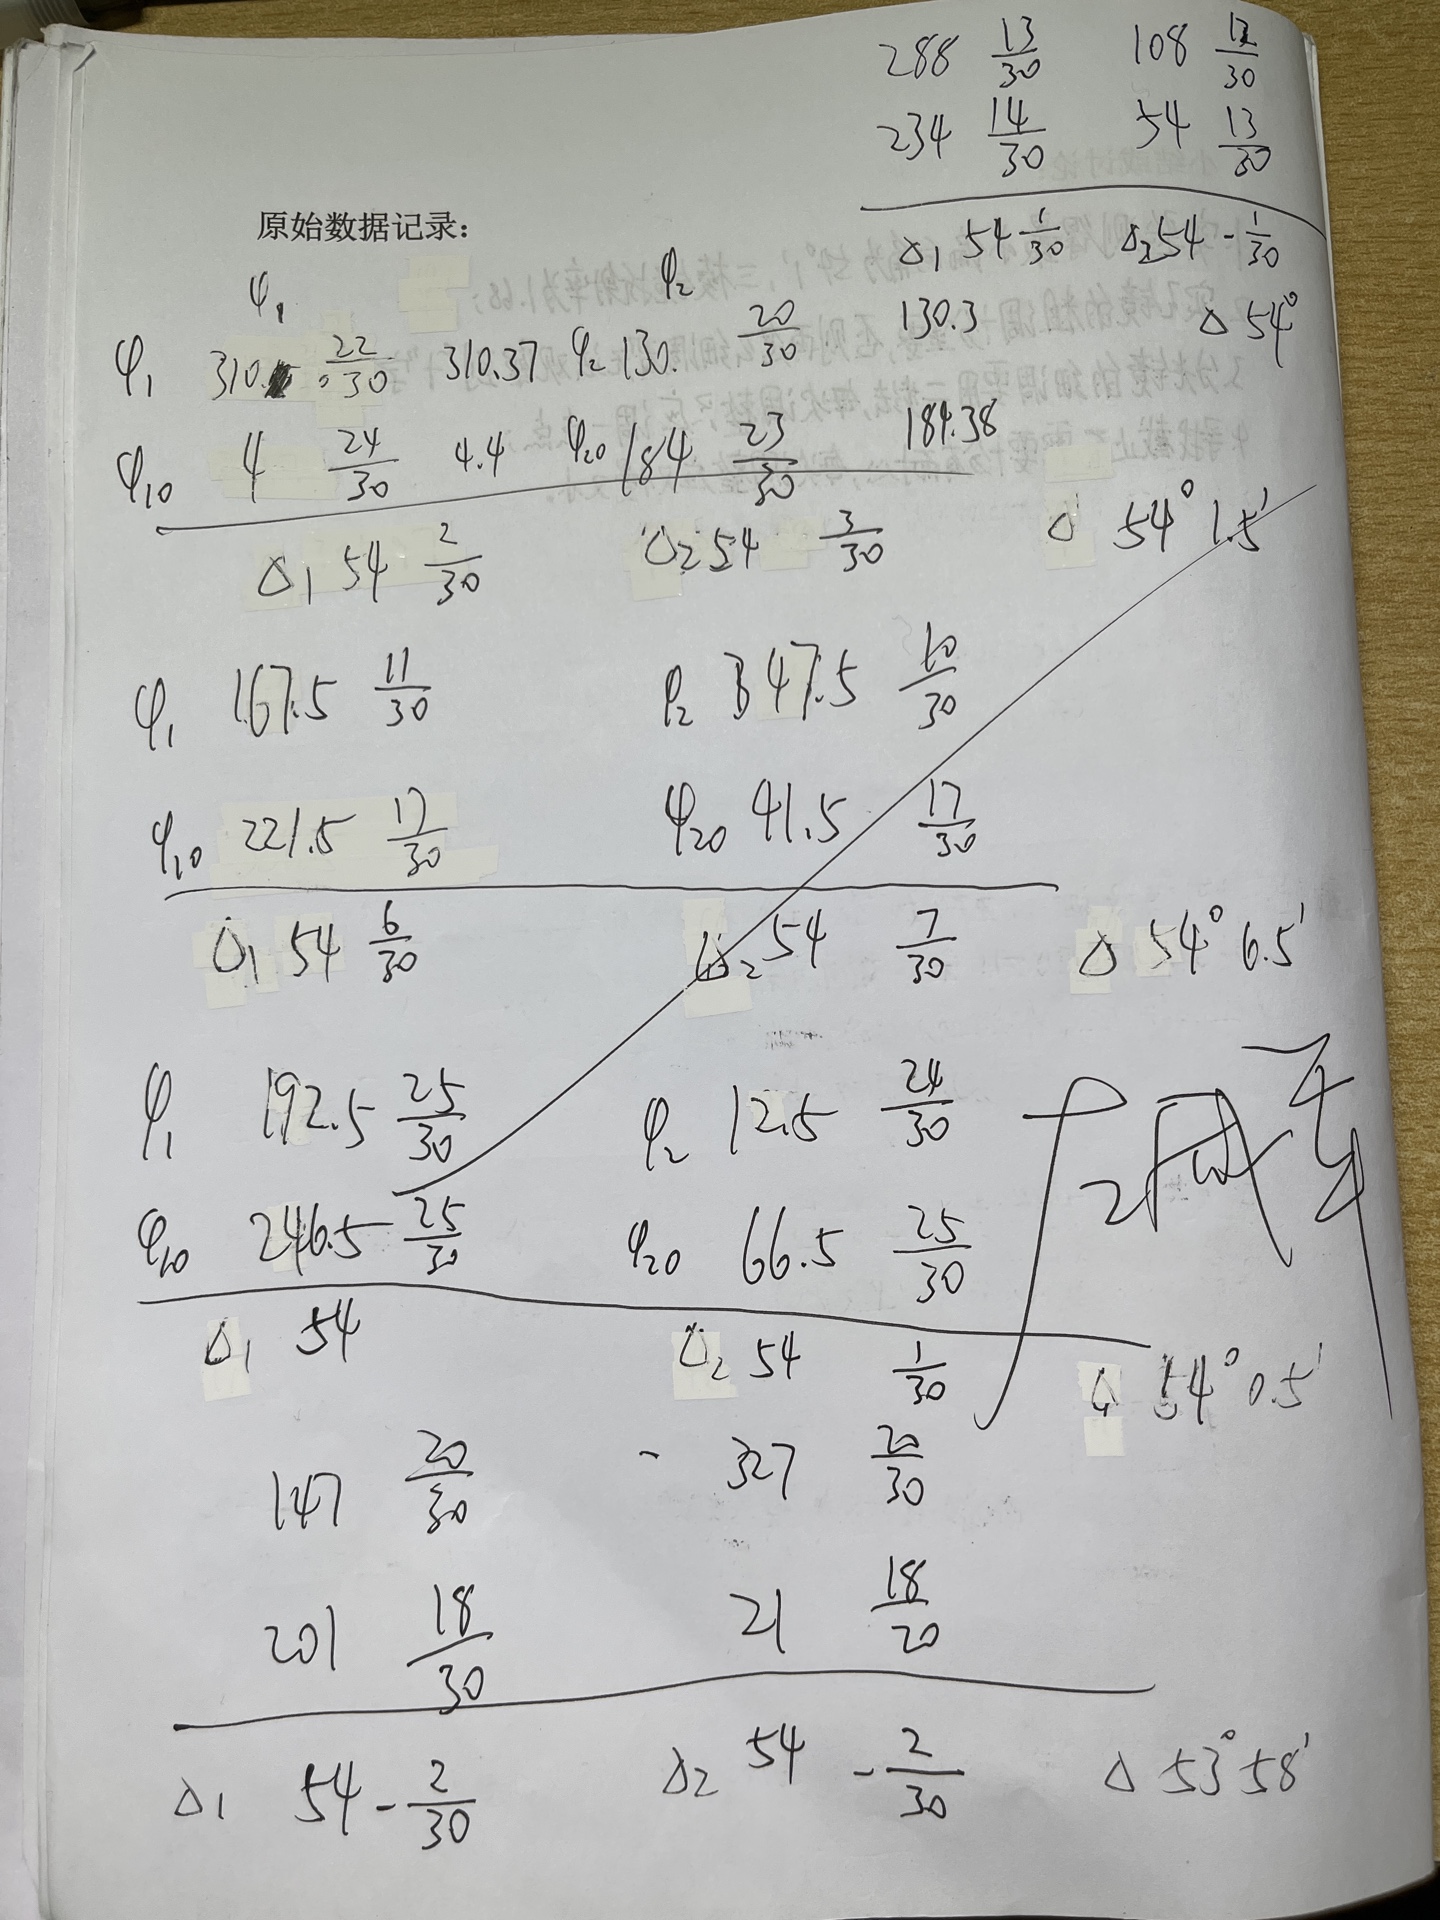 288 13/30 108 12/30
234 14/30 54 13/30
Δ1 54 1/30 Δ2 54 - 1/30
原始数据记录：
φ1 φ2
φ1 310. 22/30 310.37 φ2 130. 20/30 130.3 Δ 54°
φ10 4 24/30 4.4 φ20 184 23/30 184.38
Δ1 54 2/30 Δ2 54 3/30 Δ 54° 1.5'
φ1 167.5 11/30 φ2 347.5 10/30
φ10 221.5 17/30 φ20 41.5 17/30
Δ1 54 6/30 Δ2 54 7/30 Δ 54° 6.5'
φ1 192.5 25/30 φ2 12.5 24/30
φ10 246.5 25/30 φ20 66.5 25/30
Δ1 54 Δ2 54 1/30 Δ 54° 0.5'
147 20/30 - 327 20/30
201 18/30 21 18/20
Δ1 54 - 2/30 Δ2 54 - 2/30 Δ 53° 58'